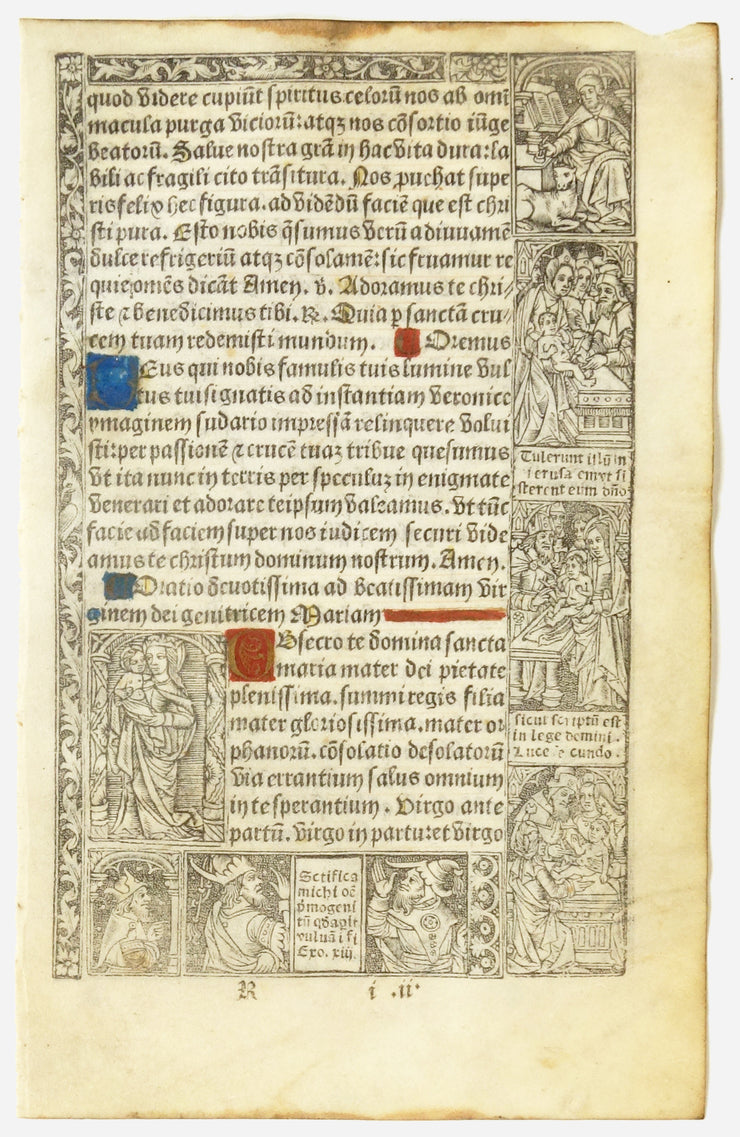 quod videre cupiūt spiritus celorū nos ab omī
macula purga viciorū: atqꝫ nos cōsortio iūge
beatorū. Salue nostra grā in hac vita dura: la
bili ac fragili cito trāsitura. Nos ꝓuehat supe
ris felix hec figura. ad vidēdū faciē que est chri
sti pura. Esto nobis q̄sumus verū adiuuamē
dulce refrigeriū atqꝫ cōsolamē: sic fruamur re
quie omēs dicāt Amen. v. Adoramus te chri⸗
ste ⁊ benedicimus tibi. ℟. Quia ꝑ sanctā cru⸗
cem tuam redemisti mundum. Oremus
Deus qui nobis famulis tuis lumine vul
tus tui signatis ad instantiam Veronice
ymaginem sudario impressā relinquere volui
sti: per passionē ⁊ crucē tuaꝫ tribue quesumus
vt ita nunc in terris per speculuꝫ in enigmate
venerari et adorare te ipsum valeamus. vt tūc
facie ad faciem super nos iudicem securi vide
amus te christum dominum nostrum. Amen.
Oratio deuotissima ad beatissimam vir
ginem dei genitricem Mariam
Obsecro te domina sancta
maria mater dei pietate
plenissima. summi regis filia
mater gloriosissima. mater or
phanorū. cōsolatio desolatorū
via errantium salus omnium
in te sperantium. Virgo ante
partū. virgo in partu: et virgo
Tulerunt illū in
ierusalem vt si
sterent eum dño
sicut scriptū est
in lege domini.
Luce secundo.
Sctifica
michi oē
pmogeni
tū qd aꝑit
vuluā i fi
Exo. xiii
R i .ii.